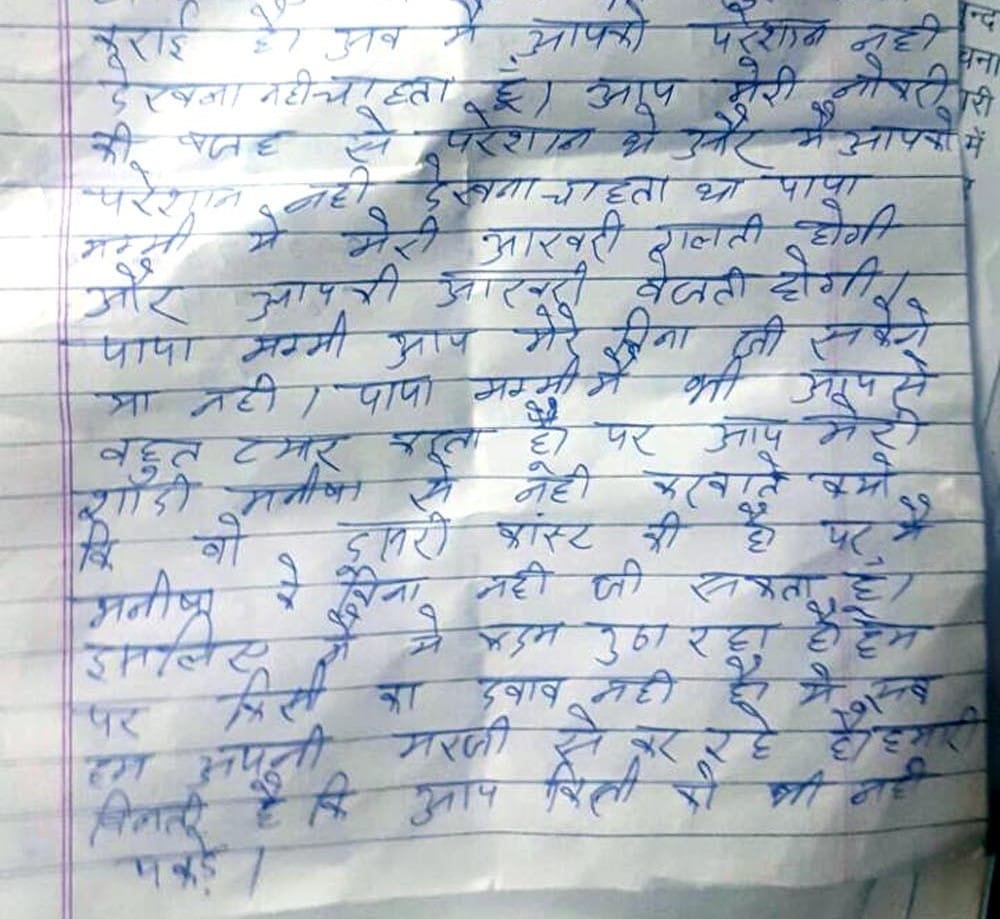 बुराई है। अब मै आपको परेशान नही
देखना नही चाहता हूँ। आप मेरी नोकरी
की वजह से परेशान थे और मै आपको
परेशान नही देखना चाहता था पापा
मम्मी ये मेरी आखरी गलती होगी
और आपकी आखरी बेजती होगी।
पापा मम्मी आप मेरे बिना जी सकेगे
या नही। पापा मम्मी मै भी आपसे
बहुत प्यार करता है। पर आप मेरी
शादी मनीषा से नही करवाते क्यो
कि वो दुसरी कास्ट की है पर मै
मनीषा के बिना नही जी सकता हूं।
इसलिए मै ये कदम उठा रहा है। हम
पर किसी का दबाब नही है। ये सब
हम अपनी मरजी से कर रहे है। हमारी
विनती है कि आप किसी को भी नही
पकड़े।
न्द
चना
री
में